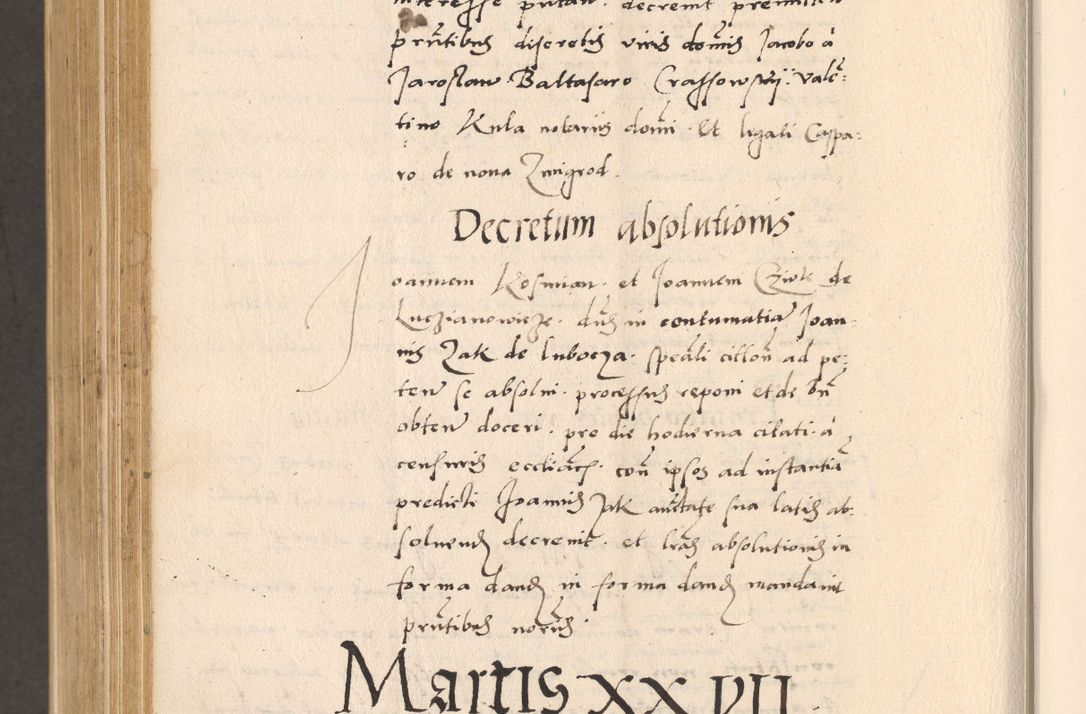 interesse putan. decrevit premissa
pñtibus discretis viris dominis Jacobo a
Jaroslaw Baltasaro Crassowskij Valē:
tino Kula notariis domī. Et ligati Caspa:
ro de nova Zmigrod.
Decretum absolutionis
Joannem Kosmian. et Joannem Cziolk de
Luczianowicze. dnus in contumatia Joan-
nis Zak de lubocza. speāli citton ad pe-
ten se absolvi. processus reponi et de bn
obten doceri. pro die hodierna citati. a
censuris eccliācz. con ipsos ad instantiā
predicti Joannis Zak auctate sua latis ab-
solvend decrevit. et lras absolutionis in
forma dand in forma dand mandavit
pñtibus noriis.
Martis XXVII.